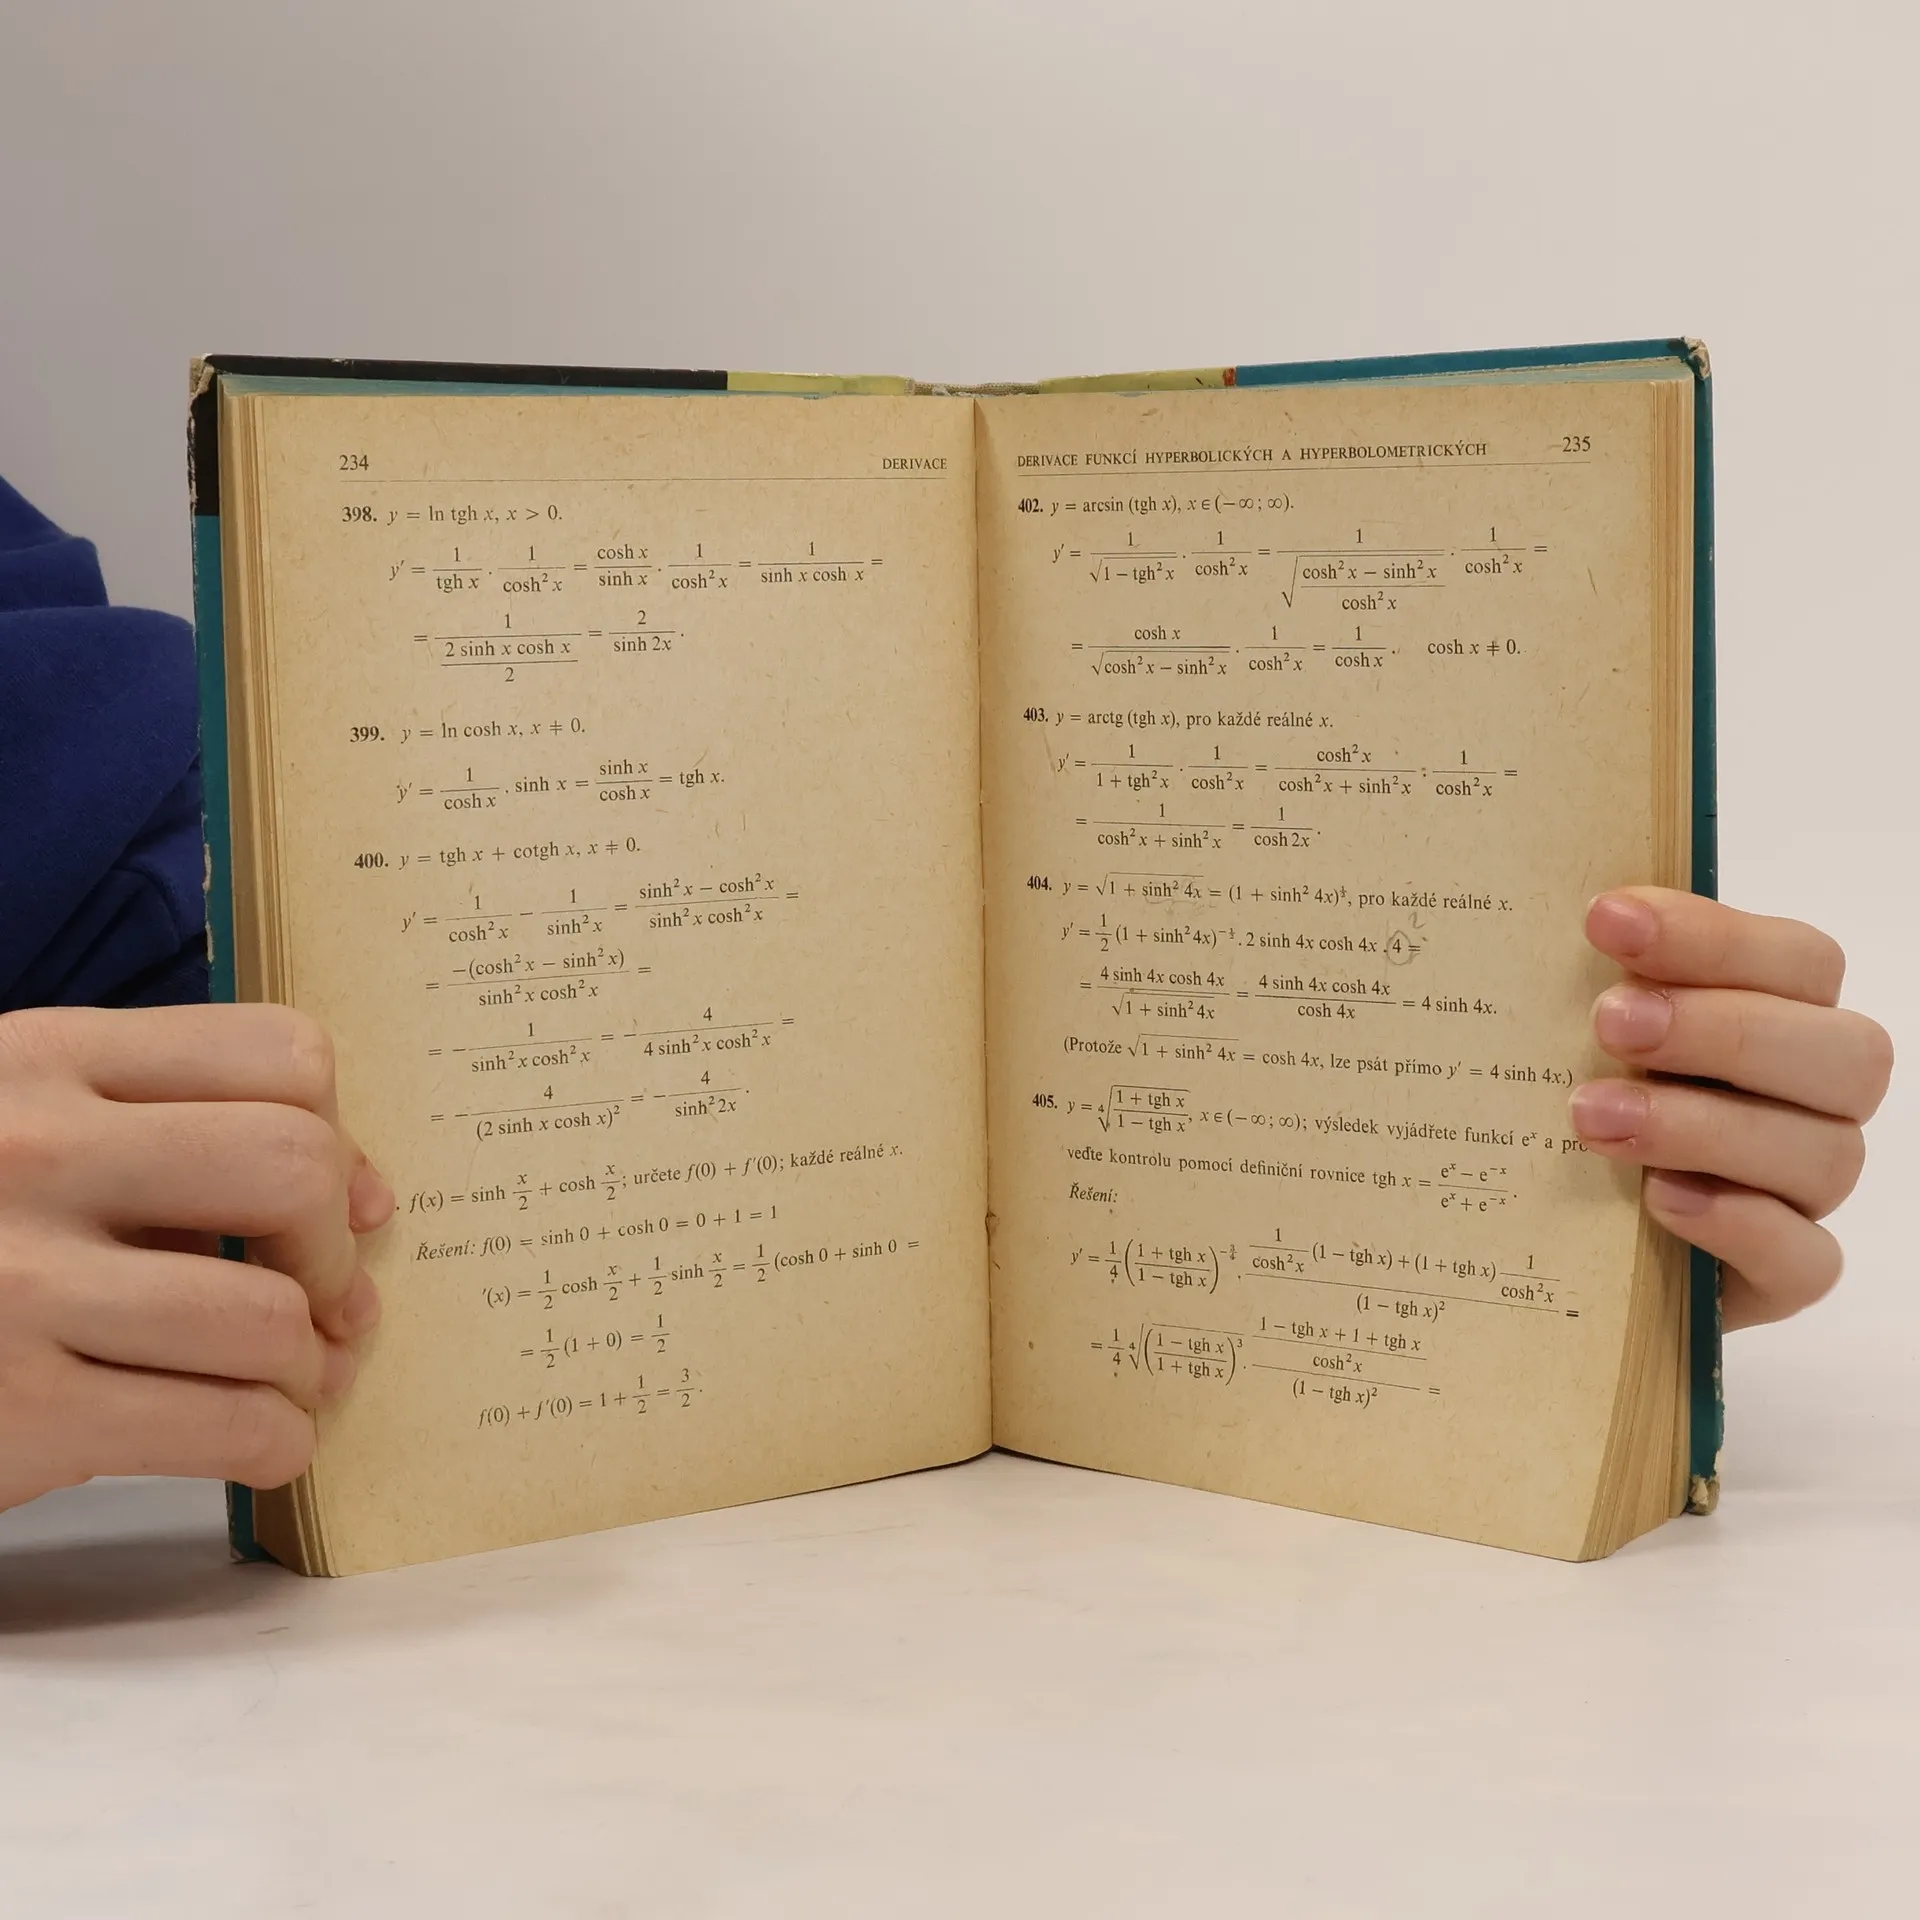 234 DERIVACE
398. y = ln tgh x, x > 0.
y' = 1/(tgh x) . 1/(cosh² x) = (cosh x)/(sinh x) . 1/(cosh² x) = 1/(sinh x cosh x) =
= 1/((2 sinh x cosh x)/2) = 2/(sinh 2x).
399. y = ln cosh x, x ≠ 0.
y' = 1/(cosh x) . sinh x = (sinh x)/(cosh x) = tgh x.
400. y = tgh x + cotgh x, x ≠ 0.
y' = 1/(cosh² x) − 1/(sinh² x) = (sinh² x − cosh² x)/(sinh² x cosh² x) =
= −(cosh² x − sinh² x)/(sinh² x cosh² x) =
= − 1/(sinh² x cosh² x) = − 4/(4 sinh² x cosh² x) =
= − 4/(2 sinh x cosh x)² = − 4/(sinh² 2x).
. f(x) = sinh x/2 + cosh x/2; určete f(0) + f'(0); každé reálné x.
Řešení: f(0) = sinh 0 + cosh 0 = 0 + 1 = 1
'(x) = 1/2 cosh x/2 + 1/2 sinh x/2 = 1/2 (cosh 0 + sinh 0 =
= 1/2 (1 + 0) = 1/2
f(0) + f'(0) = 1 + 1/2 = 3/2.
DERIVACE FUNKCÍ HYPERBOLICKÝCH A HYPERBOLOMETRICKÝCH 235
402. y = arcsin (tgh x), x ∈ (−∞; ∞).
y' = 1/√(1 − tgh² x) . 1/(cosh² x) = 1/√((cosh² x − sinh² x)/(cosh² x)) . 1/(cosh² x) =
= (cosh x)/√(cosh² x − sinh² x) . 1/(cosh² x) = 1/(cosh x). cosh x ≠ 0.
403. y = arctg (tgh x), pro každé reálné x.
y' = 1/(1 + tgh² x) . 1/(cosh² x) = (cosh² x)/(cosh² x + sinh² x) . 1/(cosh² x) =
= 1/(cosh² x + sinh² x) = 1/(cosh 2x).
404. y = √(1 + sinh² 4x) = (1 + sinh² 4x)^(1/2), pro každé reálné x.
2
y' = 1/2 (1 + sinh² 4x)^(−1/2) . 2 sinh 4x cosh 4x . 4 =
= (4 sinh 4x cosh 4x)/√(1 + sinh² 4x) = (4 sinh 4x cosh 4x)/(cosh 4x) = 4 sinh 4x.
(Protože √(1 + sinh² 4x) = cosh 4x, lze psát přímo y' = 4 sinh 4x.)
405. y = ⁴√((1 + tgh x)/(1 − tgh x)), x ∈ (−∞; ∞); výsledek vyjádřete funkcí eˣ a pro
veďte kontrolu pomocí definiční rovnice tgh x = (eˣ − e⁻ˣ)/(eˣ + e⁻ˣ).
Řešení:
y' = 1/4 ((1 + tgh x)/(1 − tgh x))^(−3/4) . (1/(cosh² x) (1 − tgh x) + (1 + tgh x) 1/(cosh² x))/(1 − tgh x)² =
= 1/4 ⁴√((1 − tgh x)/(1 + tgh x))³ . ((1 − tgh x + 1 + tgh x)/(cosh² x))/(1 − tgh x)² =